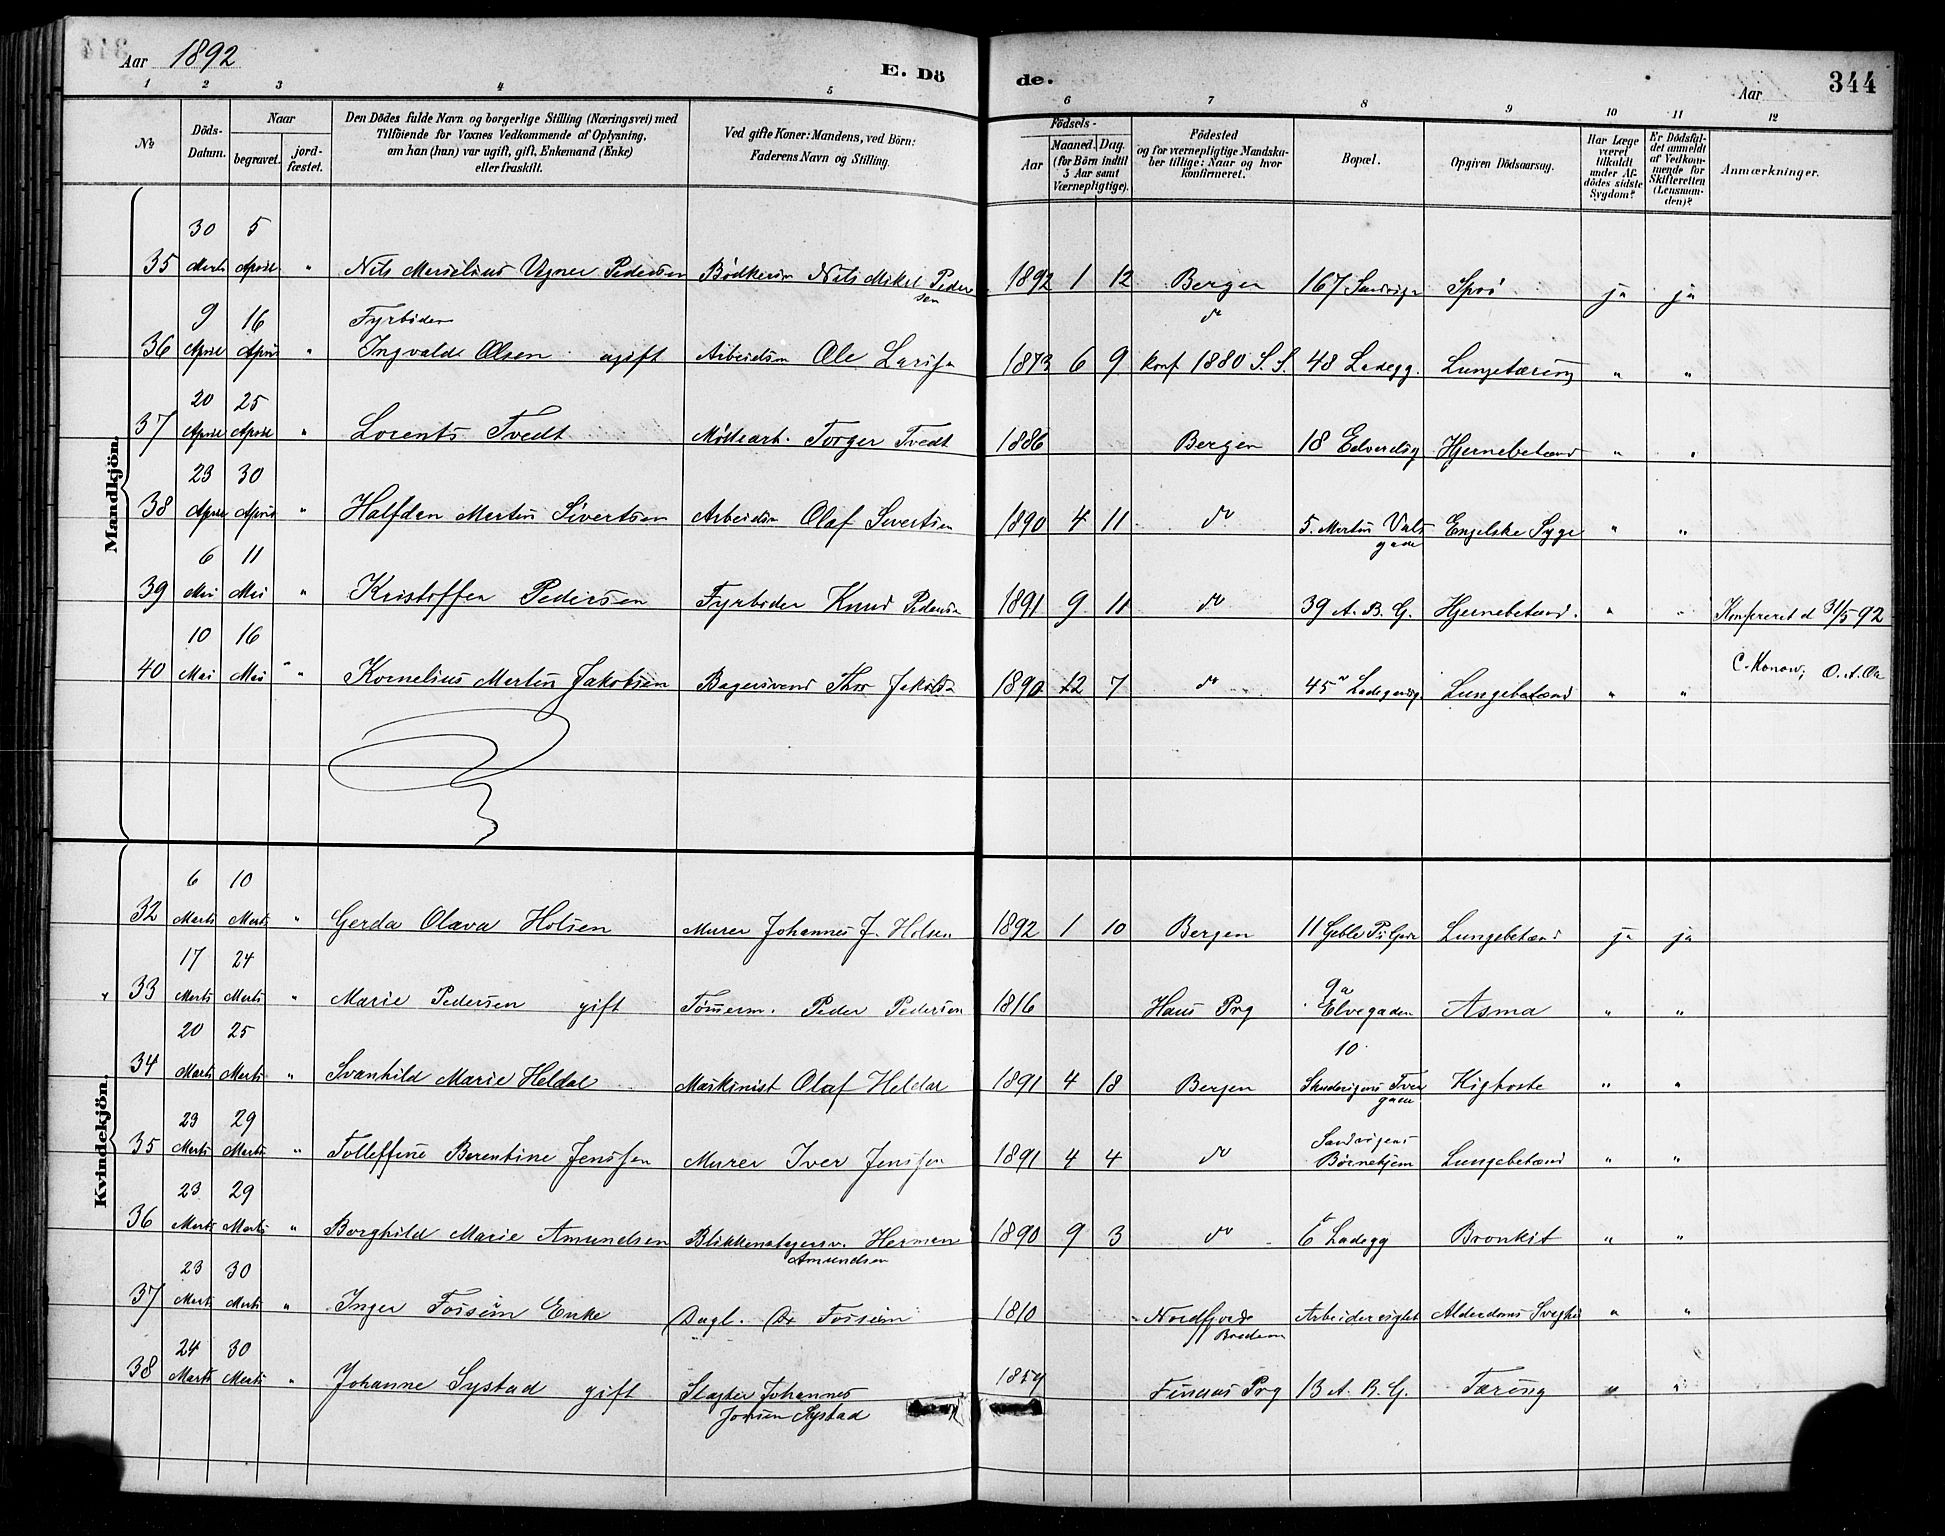 Aar 1892
E. Dö
de.
Aar
344
1 2 3 4 5 6 7 8 9 10 11 12
No
Döds-
Datum.
Naar
begravet.
jord-
fæstet.
Den Dödes fulde Navn og borgerlige Stilling (Næringsvei) med
Tilföiende for Voxnes Vedkommende af Oplysning,
om han (hun) var ugift, gift, Enkemand (Enke)
eller fraskilt.
Ved gifte Koner: Mandens, ved Börn:
Faderens Navn og Stilling.
Födsels-
Aar
Maaned. Dag.
(for Börn indtil
5 Aar samt
Værnepligtige).
Födested
og for værnepligtige Mandska-
ber tillige: Naar og hvor
konfirmeret.
Bopæl.
Opgiven Dödsaarsag.
Har Læge
været
tilkaldt
under Af-
dödes sidste
Sygdom?
Er Dödsfal-
det anmeldt
af Vedkom-
mende for
Skifteretten
(Lensman-
den)?
Anmærkninger.
Mandkjön.
30 5
35 Marts April " Nils Pedersen Nils Mikel Peder
sen
1892 1 12 Bergen 167 ja ja
9 16 Fyrbøder do
36 April April " Ingvald Olsen ugift Arbeidsm Ole 1873 6 9 konf 1880 S. S. 48 Ladegg. " "
20 25
37 April April " Lorents Tvedt Torger Tvedt 1886 Bergen 18 Hjernebetænd " "
23 30
38 April April " Halfdan Martin Sivertsen Arbeidsm Olaf Sivertsen 1890 4 11 do 5. Martin
gade
Engelske Syge " "
6 11
39 Mai Mai " Kristoffer Pedersen Fyrbøder Knud Pedersen 1891 9 11 do 39 A. B. G. Hjernebetænd. " " Konfereret d 31/5-92
10 16
40 Mai Mai " Kornelius Martin Jakobsen Bagersvend 1890 12 7 do 45 Lungebetænd " " C. Monow;
Kvindekjön.
6 10
32 Marts Marts " Gerda Olava Holsen Murer Johannes J. Holsen 1892 1 10 Bergen 11 Lungebetænd ja ja
17 24 9a
33 Marts Marts " Marie Pedersen gift Tømerm. Peder Pedersen 1816 Haus Prg Elvegaden Asma " "
20 25 10
34 Marts Marts " Svanhild Marie Heldal Maskinist Olaf Heldal 1891 4 18 Bergen Tver
gade
Kighoste " "
23 29 Sandvigens
35 Marts Marts " Tolleffine Berentine Jenssen Murer Iver Jenssen 1891 4 4 do Børnehjem Lungebetænd " "
23 29
36 Marts Marts " Borghild Marie Amundsen Blikkenslagersv. Herman
Amundsen
1890 9 3 do 6 Ladegg Bronkit " "
23 30
37 Marts Marts " Inger Enke Dagl. 1810 Nordfjord
Alderdoms " "
24 30
38 Marts Marts " Johanne Systad gift Slagter Johannes
Systad
Prg 13 A. B. G. Tæring " "